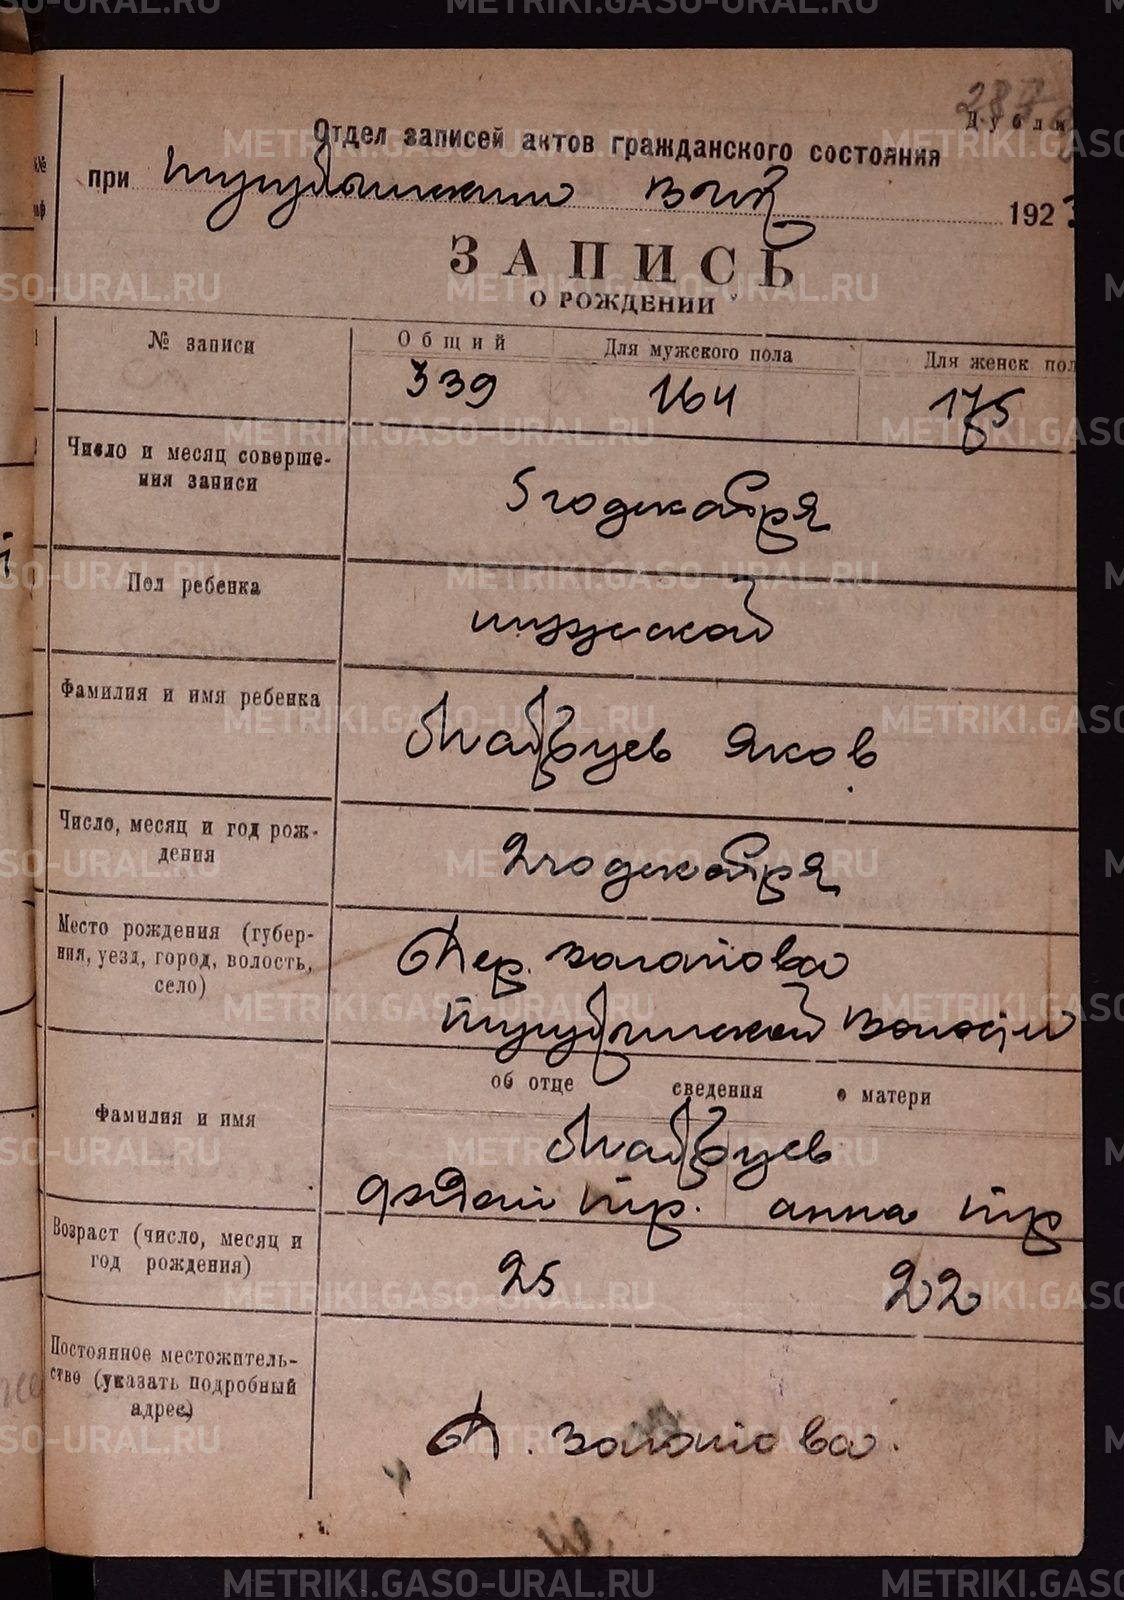 287
Дубли
Отдел записей актов гражданского состояния
при Тугулымским ВИК 1923
ЗАПИСЬ
О РОЖДЕНИИ
№ записи
Общий Для мужского пола Для женск пол
339 164 175
Число и месяц соверше-
ния записи
5 го декабря
Пол ребенка
мужской
Фамилия и имя ребенка
Яков
Число, месяц и год рож-
дения
2 го декабря
Место рождения (губер-
ния, уезд, город, волость,
село)
Дер. Золотова
Тугулымской волости
об отце сведения о матери
Фамилия и имя
анна
Возраст (число, месяц и
год рождения)
25 22
Постоянное местожитель-
ство (указать подробный
адрес)
Д. Золотова
METRIKI.GASO-URAL.RU